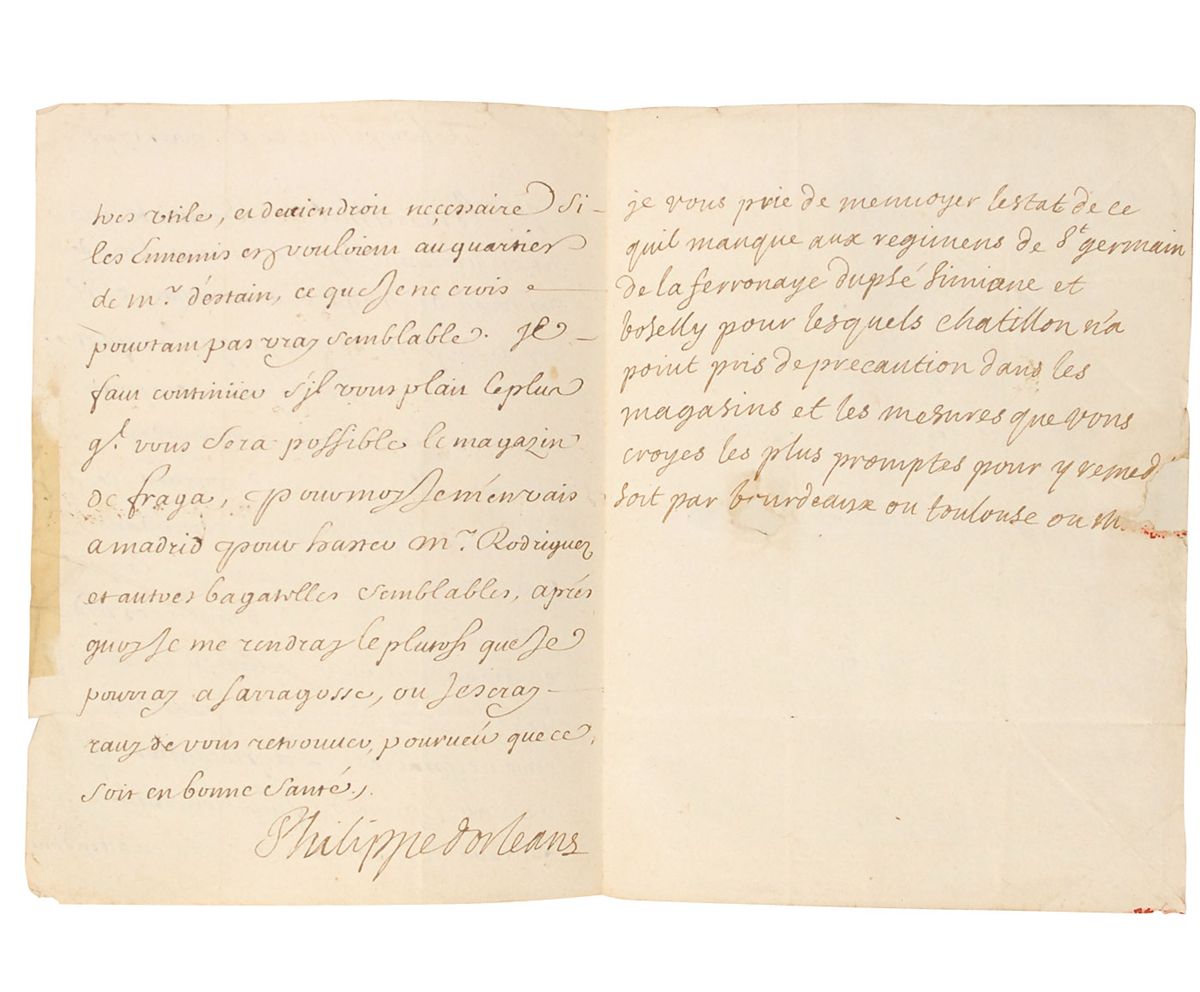 tres vtile, et deuiendroit necessaire si
les Ennemis en vouloient au quartier
de mr. destain, ce que Je ne crois
pourtant pas vray semblable. Il
faut continuer s'il vous plait le plus
qt. vous sera possible le magazin
de fraga, pour moy Je m'en vais
a madrid pour haster mr. Rodriguez
et autres bagatelles semblables, aprés
quoy Je me rendray le plutost que Je
pourray a sarragosse, ou Je seray
rauy de vous retrouuer, pourueu que ce
soit en bonne santé./.
Philippe dorleans
je vous prie de menuoyer lestat de ce
quil manque aux regimens de St germain
de la ferronaye dupsé Simiane et
boselly pour lesquels chatillon n'a
point pris de precaution dans les
magasins et les mesures que vous
croyes les plus promptes pour y remed
soit par bourdeaux ou toulouse ou